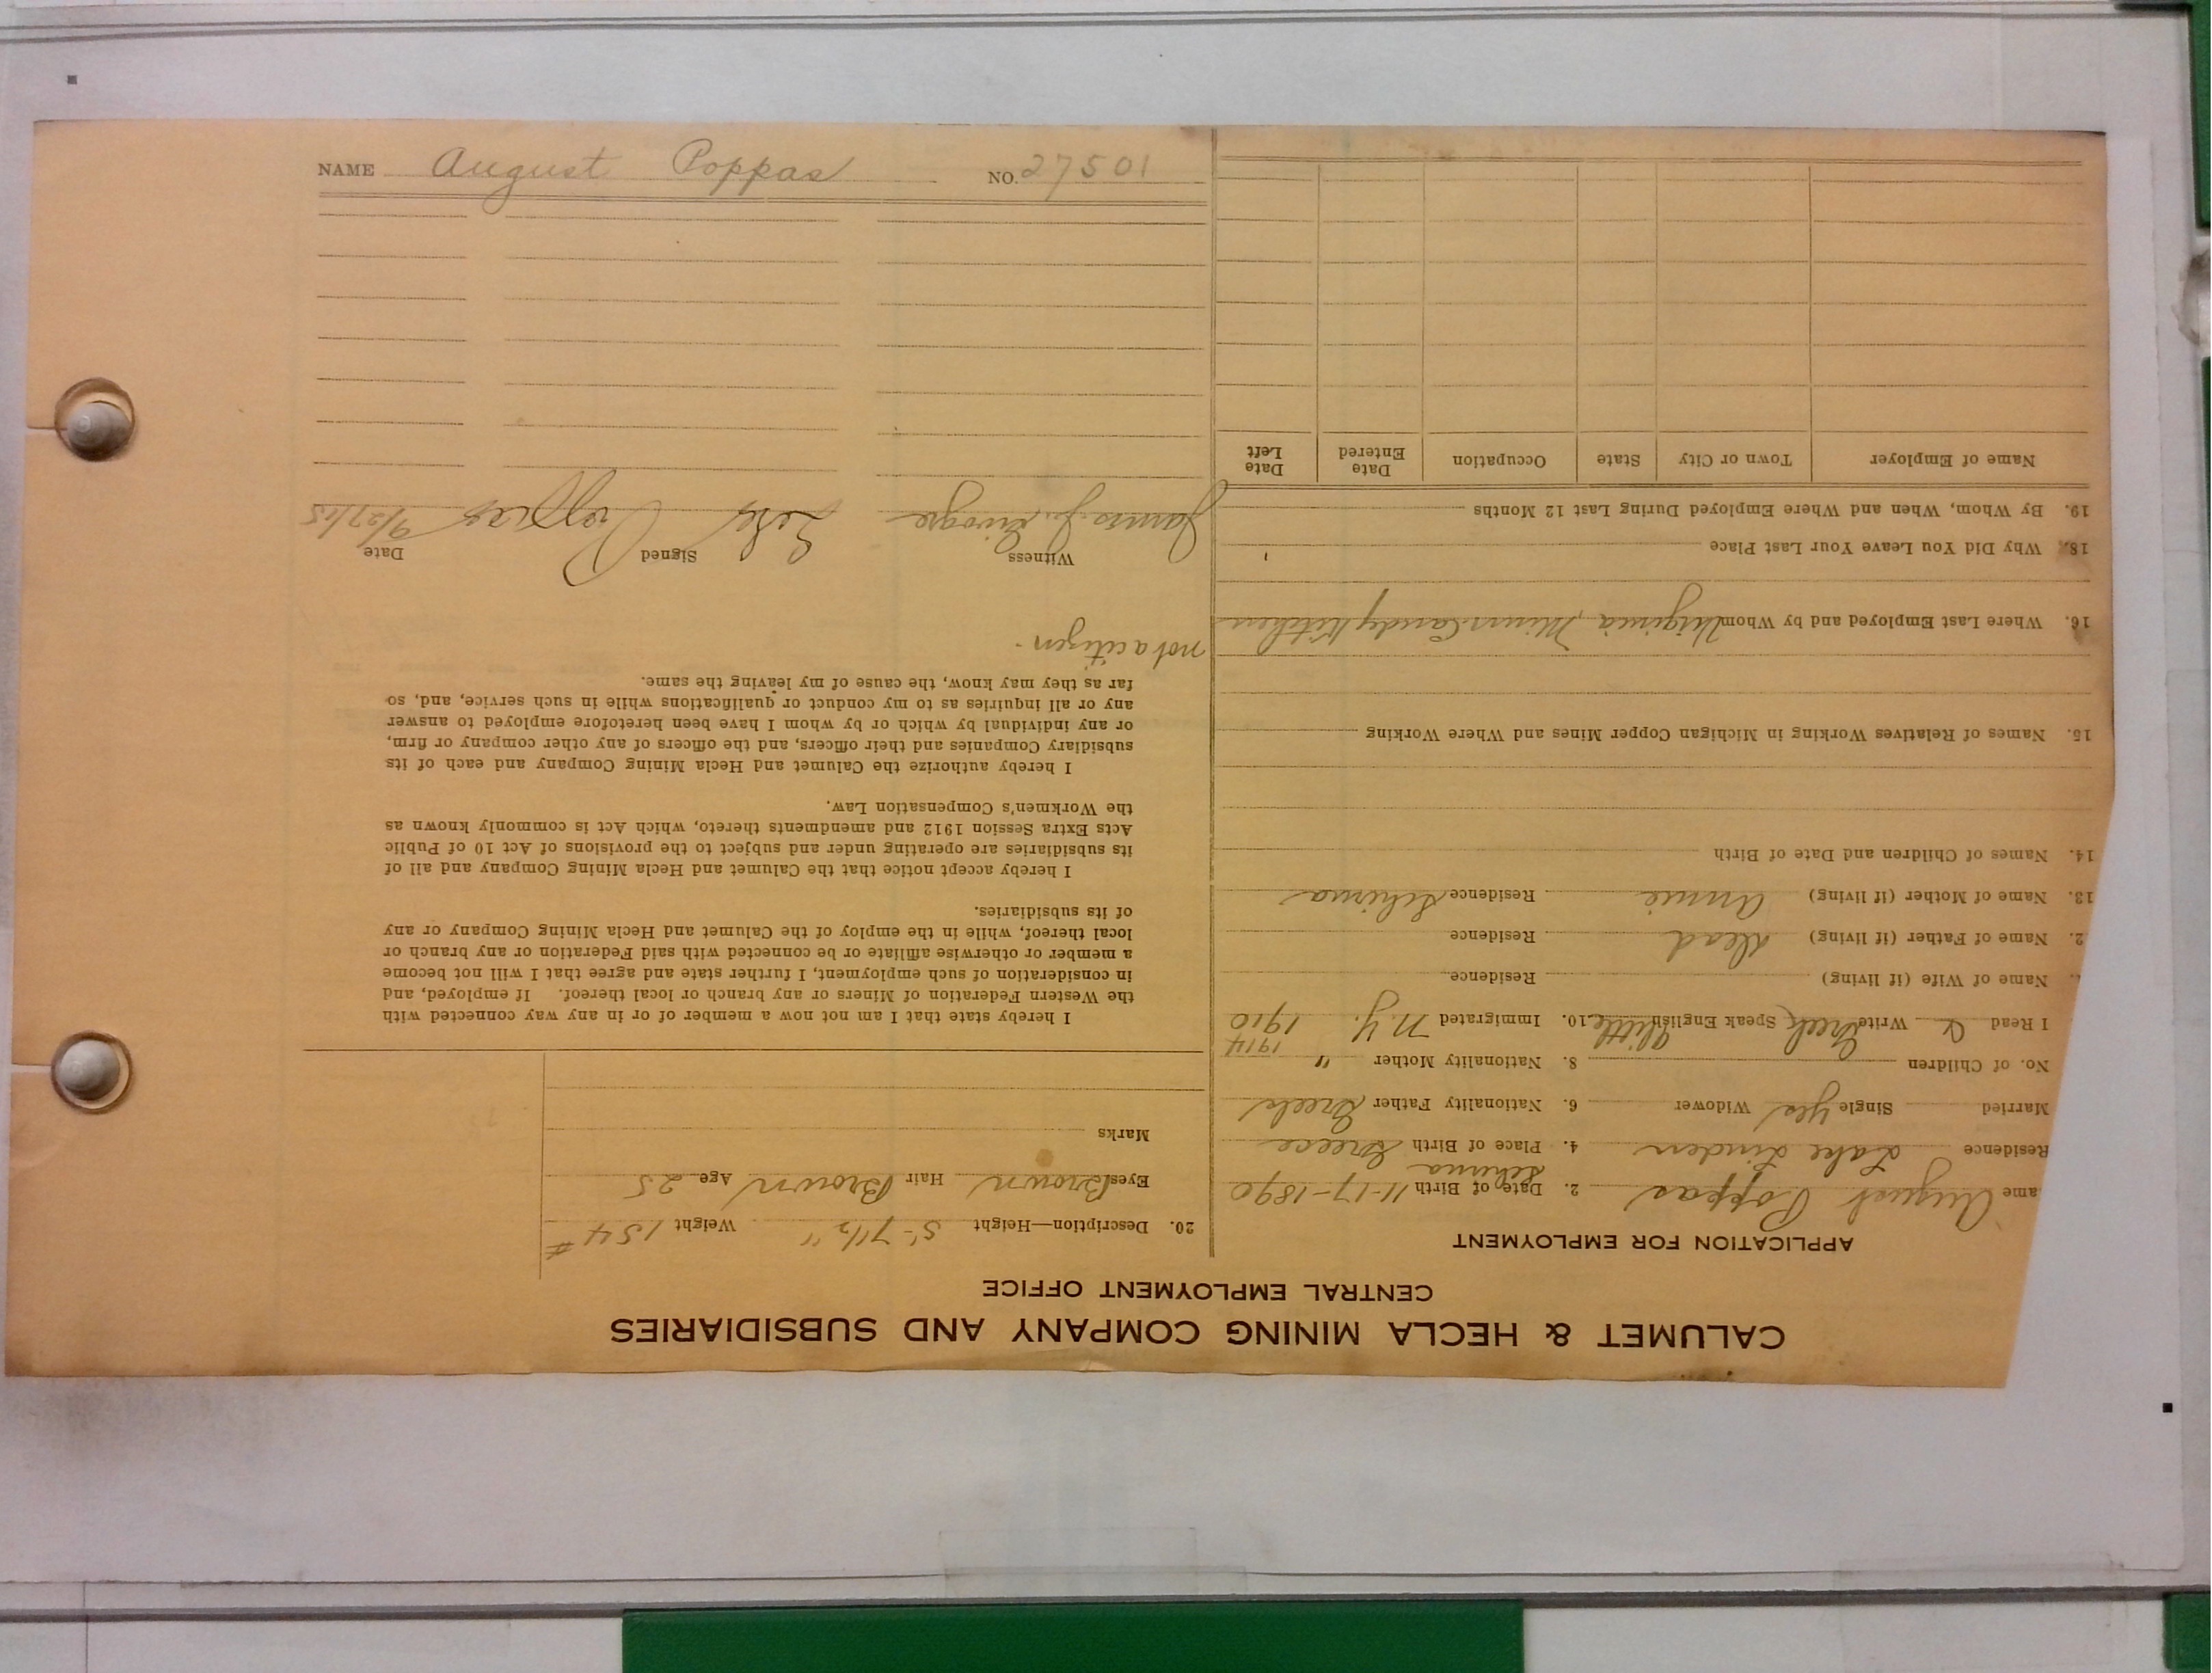 NAME August Poppas NO. 27501
CALUMET & HECLA MINING COMPANY AND SUBSIDIARIES
CENTRAL EMPLOYMENT OFFICE
APPLICATION FOR EMPLOYMENT
ame August Poppas 2. Date of Birth 11-17-1890
Residence Lake Linden 4. Place of Birth Greece
Married Single Yes Widower 6. Nationality Father Greek
No. of Children 8. Nationality Mother "
1914
I Read & Write Greek Speak English little 10. Immigrated N.Y. 1910
Name of Wife (if living) Residence
2. Name of Father (if living) dead Residence
13. Name of Mother (if living) Annie Residence
14. Names of Children and Date of Birth
15. Names of Relatives Working in Michigan Copper Mines and Where Working
16. Where Last Employed and by Whom Virginia, Minn. Candy Kitchen
18. Why Did You Leave Your Last Place
19. By Whom, When and Where Employed During Last 12 Months
Name of Employer Town or City State Occupation Date Entered Date Left
20. Description—Height 5'-7 1/2" Weight 154 #
Eyes Brown Hair Brown Age 25
Marks
I hereby state that I am not now a member of or in any way connected with
the Western Federation of Miners or any branch or local thereof. If employed, and
in consideration of such employment, I further state and agree that I will not become
a member or otherwise affiliate or be connected with said Federation or any branch or
local thereof, while in the employ of the Calumet and Hecla Mining Company or any
of its subsidiaries.
I hereby accept notice that the Calumet and Hecla Mining Company and all of
its subsidiaries are operating under and subject to the provisions of Act 10 of Public
Acts Extra Session 1912 and amendments thereto, which Act is commonly known as
the Workmen's Compensation Law.
I hereby authorize the Calumet and Hecla Mining Company and each of its
subsidiary Companies and their officers, and the officers of any other company or firm,
or any individual by which or by whom I have been heretofore employed to answer
any or all inquiries as to my conduct or qualifications while in such service, and, so
far as they may know, the cause of my leaving the same.
not a citizen.
Witness Signed Date
James J. Poppas 9/27/15